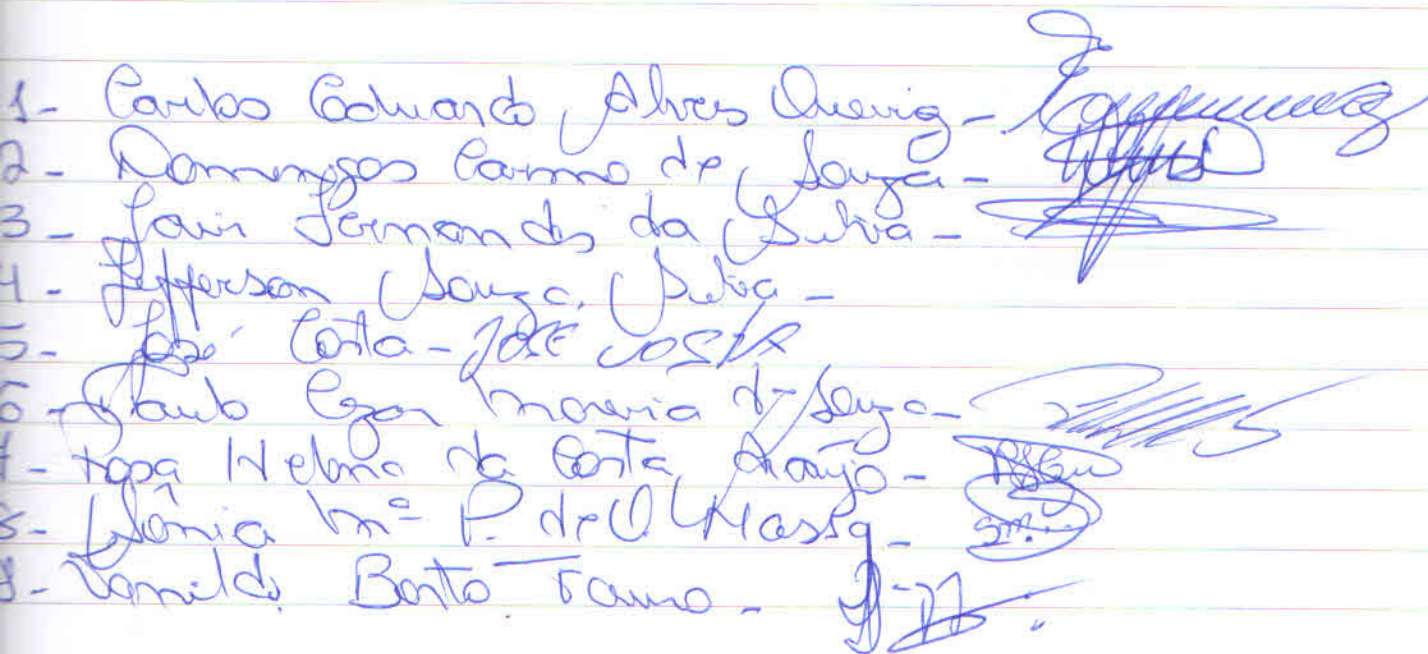 1- Carlos Eduardo Alves Queiroz -
2- Domingos Carmo de Souza -
3- Jair Fernandes da Silva -
4- Jefferson Souza Silva -
5- José Costa - JOSE COSTA
6- Paulo Cezar Moreira de Souza -
7- Rosa Helena da Costa Araújo -
8- Sônia Mª P. de O.
9- Vanildo Bento